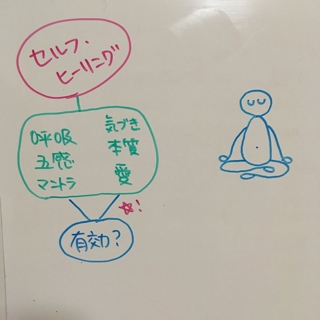 セルフ・
ヒーリング
呼吸
五感
マントラ
気づき
本質
愛
☆!
有効?